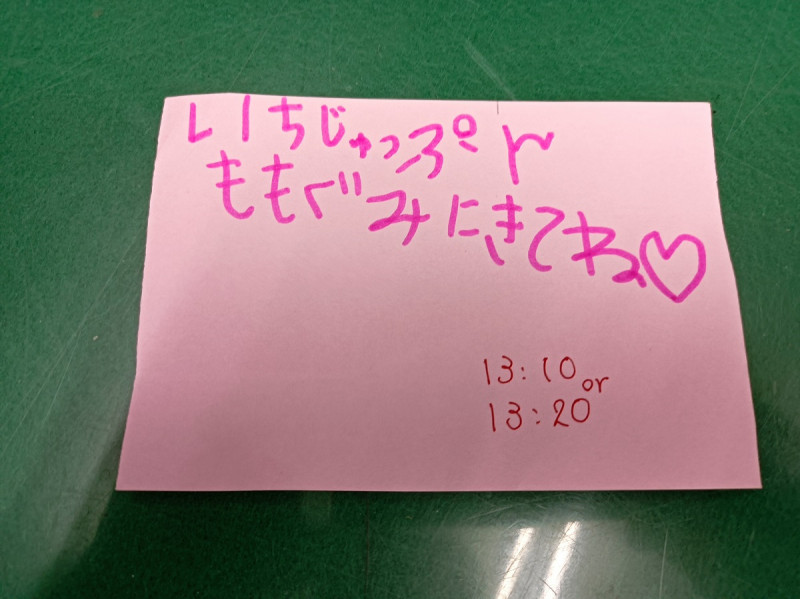 いちじゅっぷん
ももぐみにきてね♡
13:10 or
13:20